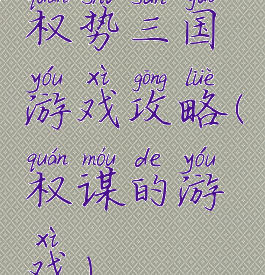 quán shì sān guó
权势三国
yóu xì gōng lüè
游戏攻略(
quán móu de yóu
权谋的游
xì
戏)